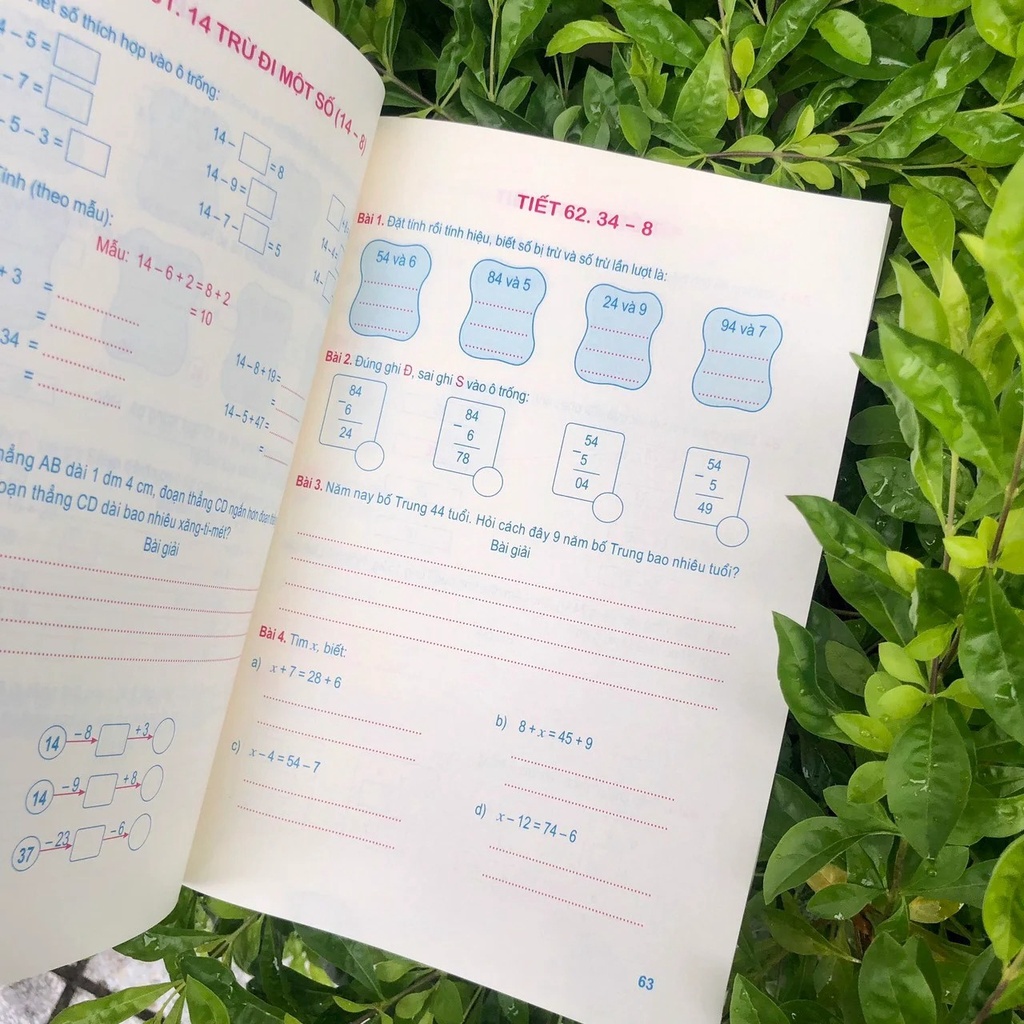 14 TRỪ ĐI MỘT SỐ (14 – 8)
số thích hợp vào ô trống:
– 5 =
– 7 =
– 5 – 3 =
14 – = 8
14 – 9 =
14 – 7 – = 5
(theo mẫu):
Mẫu: 14 – 6 + 2 = 8 + 2
= 10
+ 3 =
=
34 =
=
14 – 8 + 19 =
=
14 – 5 + 47 =
=
AB dài 1 dm 4 cm, đoạn thẳng CD ngắn hơn đoạn
thẳng CD dài bao nhiêu xăng-ti-mét?
Bài giải
14 – 8 + 3
14 – 9 + 8
37 – 23 – 6
TIẾT 62. 34 – 8
Bài 1. Đặt tính rồi tính hiệu, biết số bị trừ và số trừ lần lượt là:
54 và 6
84 và 5
24 và 9
94 và 7
Bài 2. Đúng ghi Đ, sai ghi S vào ô trống:
84
–
6
24
84
–
6
78
54
–
5
04
54
–
5
49
Bài 3. Năm nay bố Trung 44 tuổi. Hỏi cách đây 9 năm bố Trung bao nhiêu tuổi?
Bài giải
Bài 4. Tìm x, biết:
a) x + 7 = 28 + 6
b) 8 + x = 45 + 9
c) x – 4 = 54 – 7
d) x – 12 = 74 – 6
63